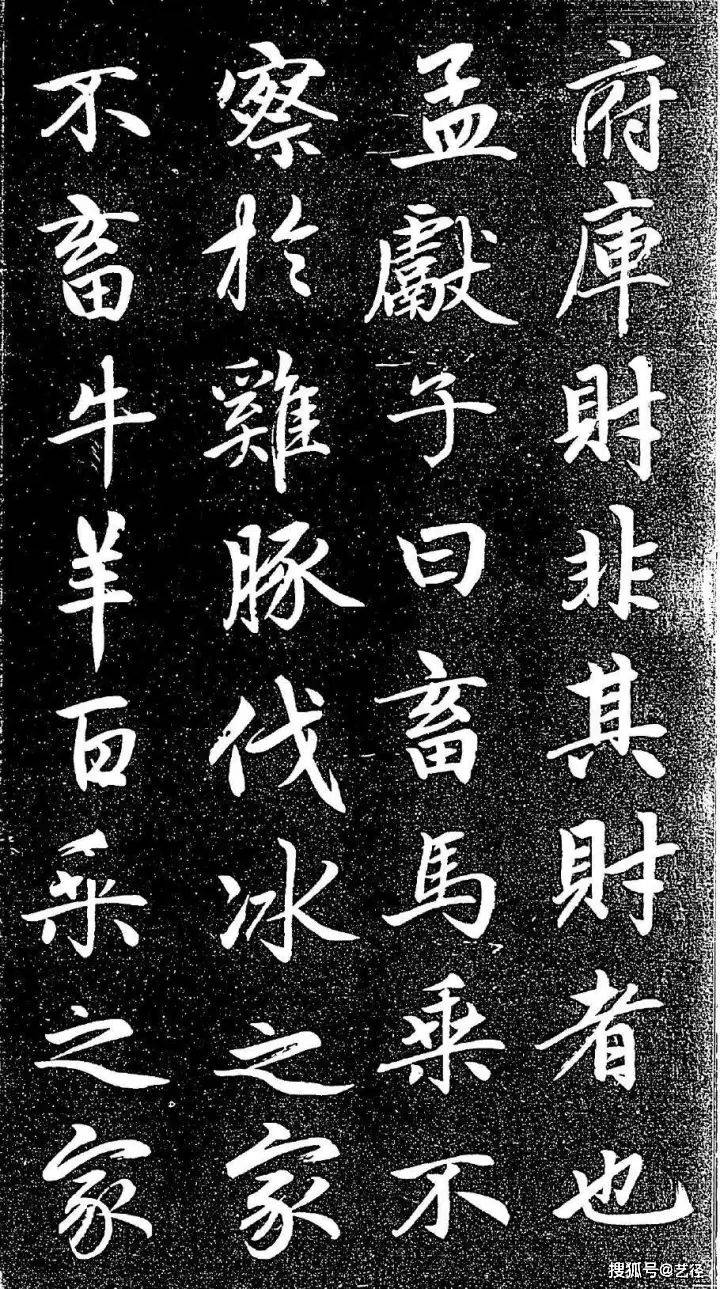 府庫財非其財者也
孟獻子曰畜馬乘不
察於雞豚伐冰之家
不畜牛羊百乘之家
搜狐号@艺径